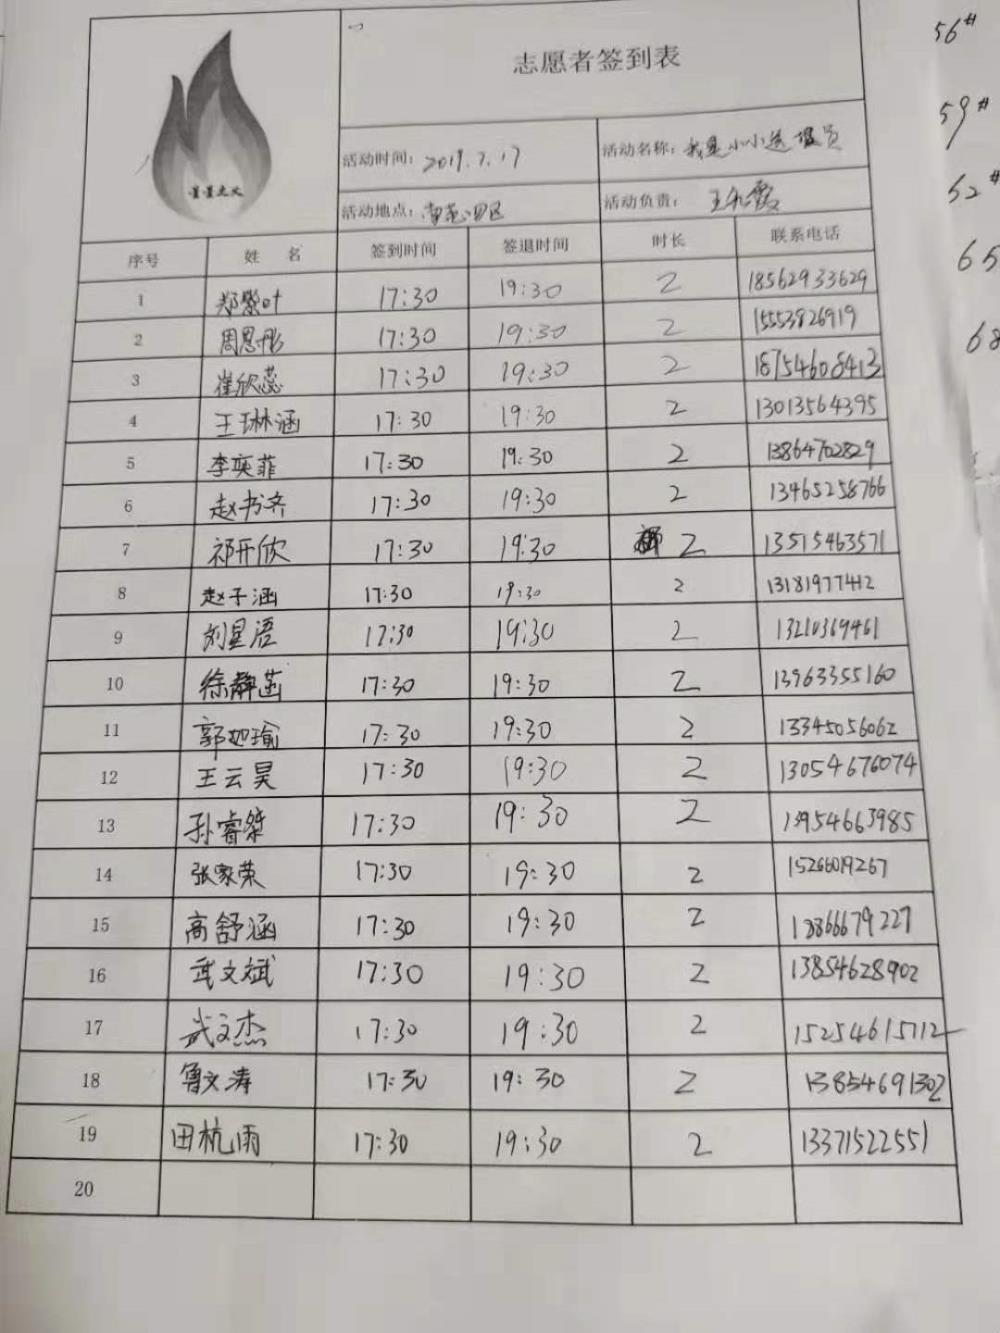 志愿者签到表
星星之火
活动时间: 2019.7.17 活动名称: 我是小小送报员
活动地点: 四区 活动负责:
序号 姓 名 签到时间 签退时间 时长 联系电话
1 郑紫叶 17:30 19:30 2 18562933629
2 周恩彤 17:30 19:30 2 15553826919
3 崔欣蕊 17:30 19:30 2 18754608413
4 王琳涵 17:30 19:30 2 13013564395
5 李奕菲 17:30 19:30 2 13864702829
6 赵书济 17:30 19:30 2 13465258766
7 祁开欣 17:30 19:30 2 13515463571
8 赵子涵 17:30 19:30 2 13181977412
9 刘星语 17:30 19:30 2 13210369461
10 徐静菡 17:30 19:30 2 13963355160
11 郭如瑜 17:30 19:30 2 13345056062
12 王云昊 17:30 19:30 2 13054676074
13 孙睿桀 17:30 19:30 2 13954663985
14 张家荣 17:30 19:30 2 15266019267
15 高舒涵 17:30 19:30 2 13866679227
16 武文斌 17:30 19:30 2 13854628902
17 武文杰 17:30 19:30 2 15254615712
18 鲁文涛 17:30 19:30 2 13854691302
19 田杭雨 17:30 19:30 2 13371522551
20
56#
59#
62#
65
68